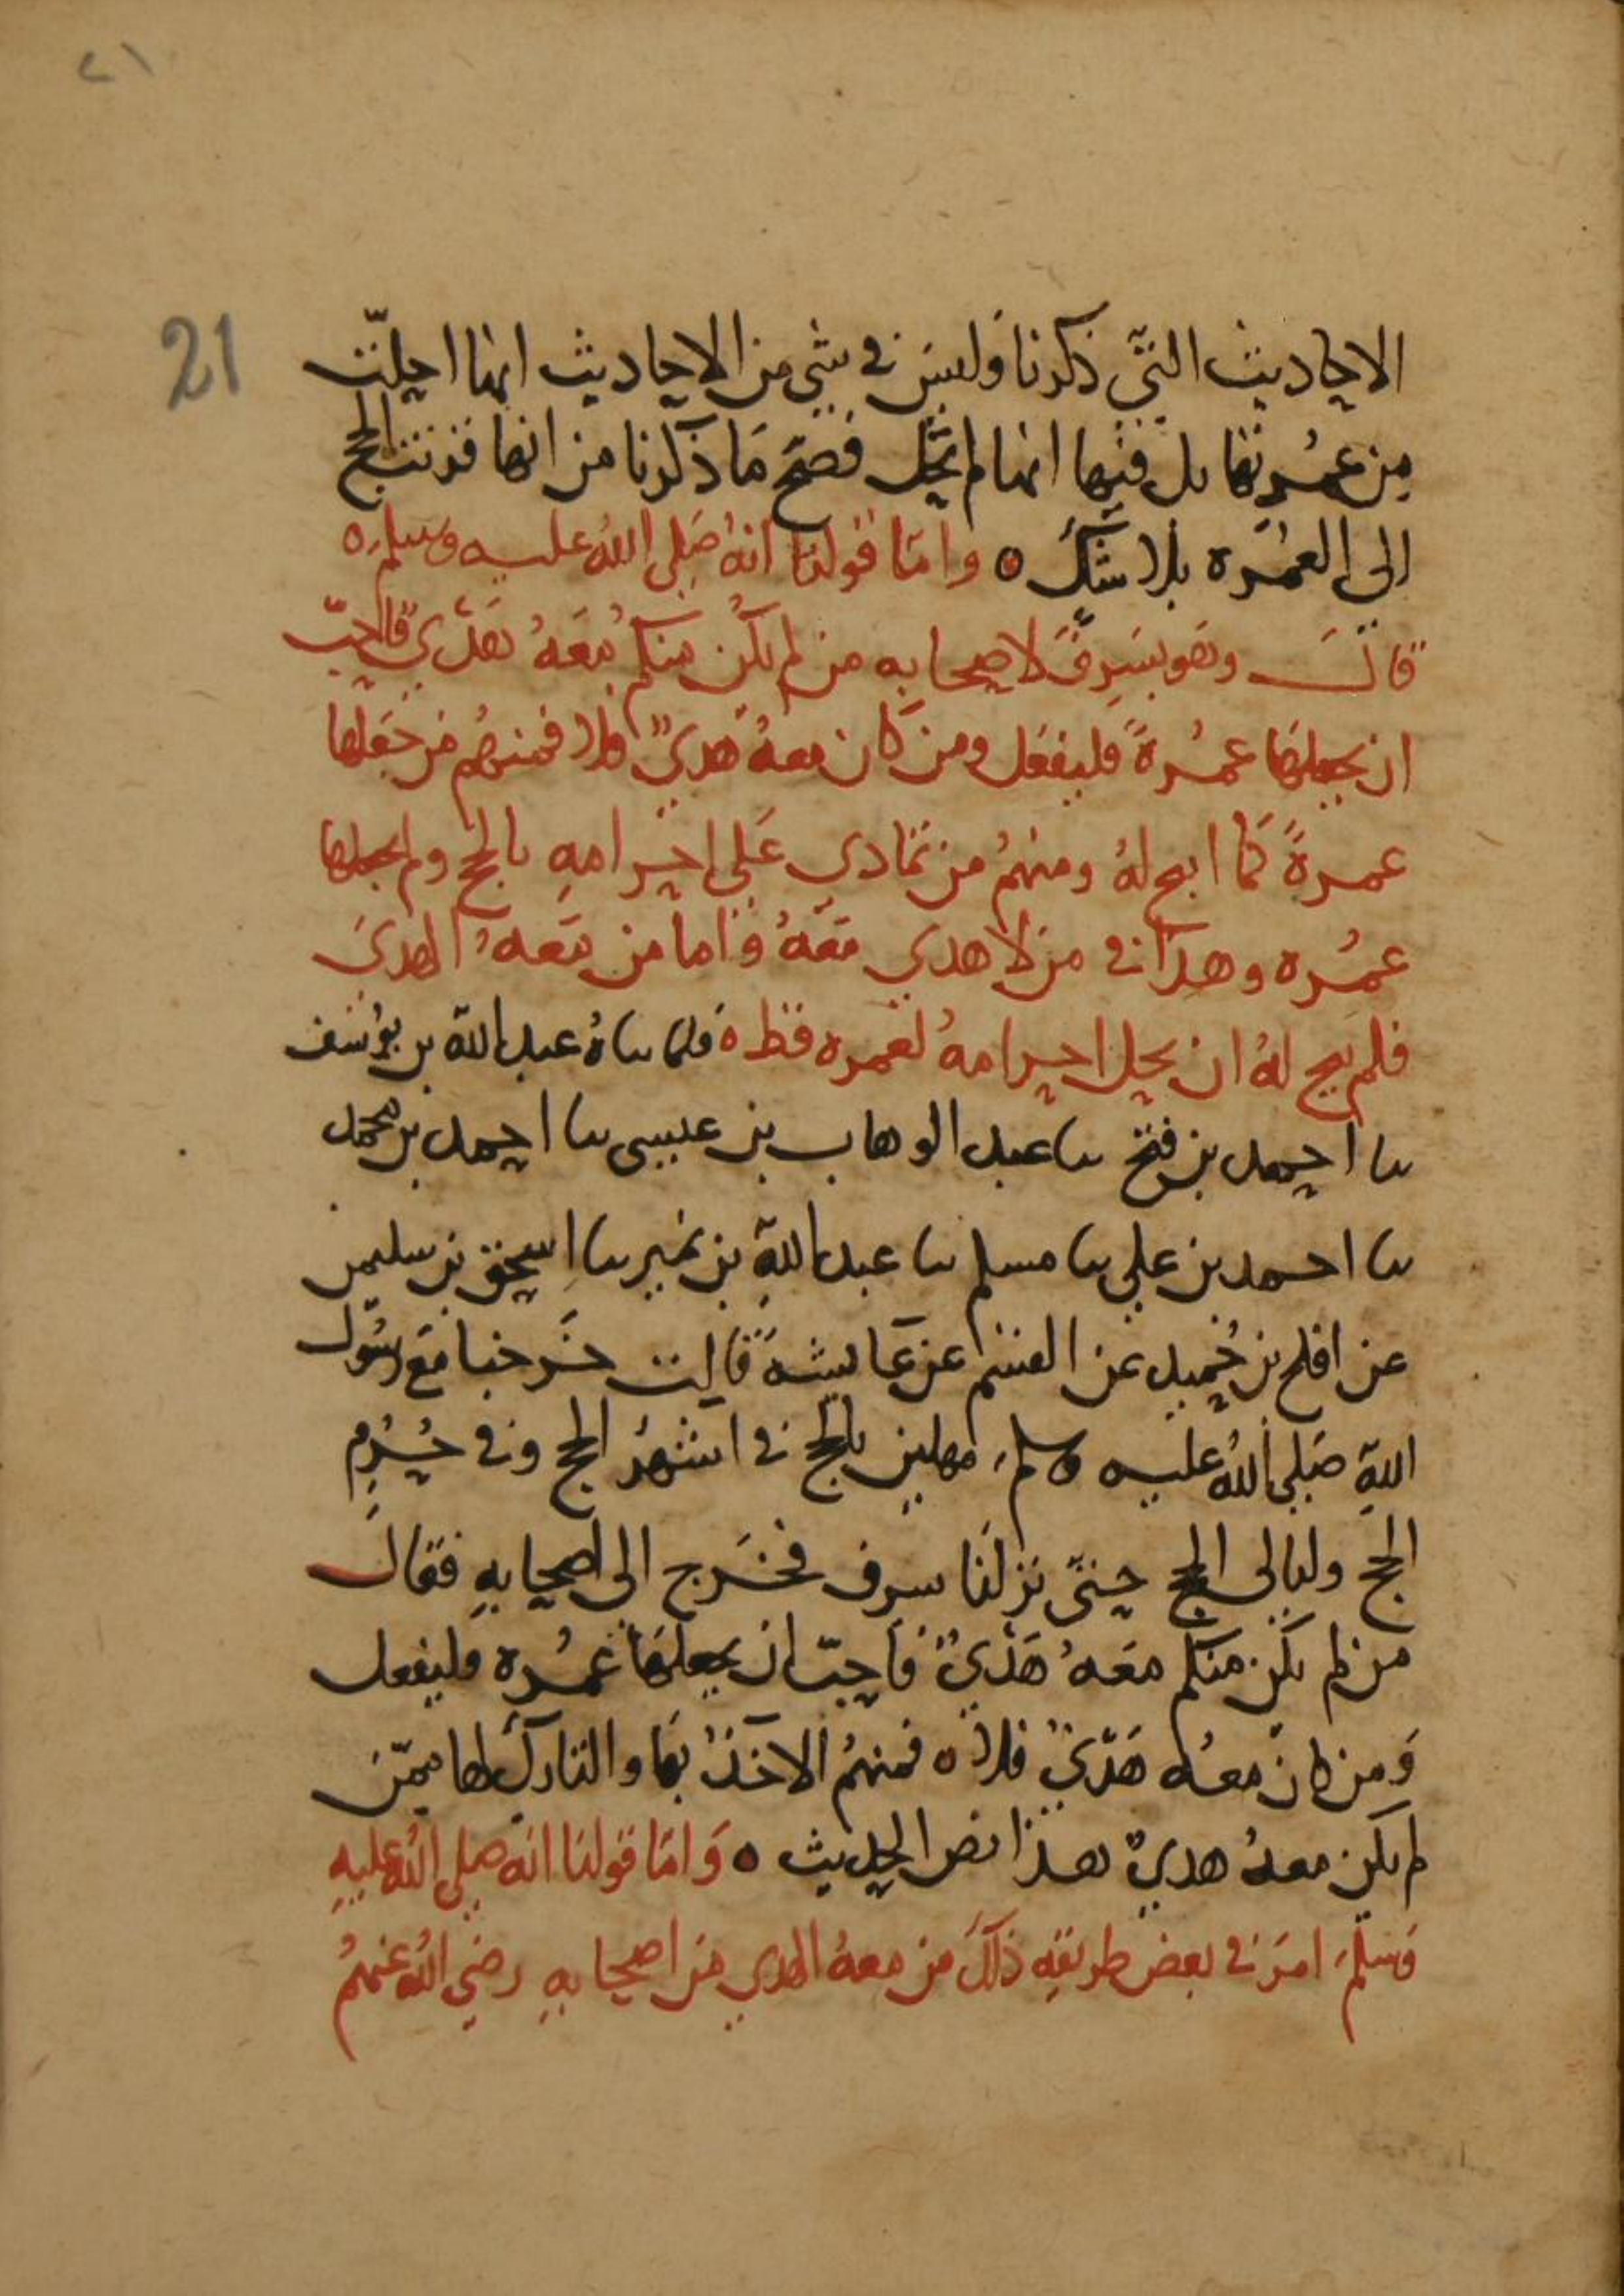 ٢١
21
الاحاديث التي ذكرنا وليس في شي من الاحاديث انها احلّت
من عمُرتها بل فيها انها لم تحل فصَح مَا ذكرنا من انها قرنت الحج
الى العُمَره بلا شك ه وامّا قولنا انهُ صَلى اللهُ عليه وسلم ه
قالـــ وهو بسَرِفَ لاصحابه من لم يكُن منكم معَهُ هَدْي فاحبّ
ان يجعلها عمُرةً فليفعَل ومن كان معهُ هَديٌ فلا فمنهُم من جَعَلها
عمرةً كما ابيح لهُ ومنهُم من تمادي عَلى احرامهِ بالحج ولم يجعلها
عمُره وهذا في من لا هدي معَهُ واما من معهُ الهديَ
فلم يبح لهُ ان يحل احرامهُ لعُمره قط ه فلما ساهُ عبد الله بن يوُسف
سا احمد بن فتح سا عبد الوهاب بن عيسى سا احمد بن محمد
سا احمد بن علي سا مسلم سا عبد اللهِ بن نمير سا اِسحق بن سليمن
عن افلح بن حُميد عن القسم عن عَايشهَ قالت خَرجنا معَ رسُول
اللهِ صَلى اللهُ عليه وسلمَ مهلين بالحج في اشهُر الحج وفي حُرُمِ
الحج وليالي الحج حتىّ نزلنَا سرف فخَرج الى اصحابهِ فقال
من لم يكُن منكم معَهُ هَدْيٌ فاحبّ ان يجعلهَا عمُره فليفعل
وَمن كان معهُ هَدْيٌ فلا ه فمنهُم الاخذُ بهَا والتاركُ لها ممّن
لم يكن معهُ هديٌ هذا نص الحديث ه وَامّا قولنا انه صلى اللهُ عليهِ
وَسلمَ امَر في بعض طريقهِ ذلكَ من معهُ الهدي من اصحابهِ رضي اللهُ عنهُم